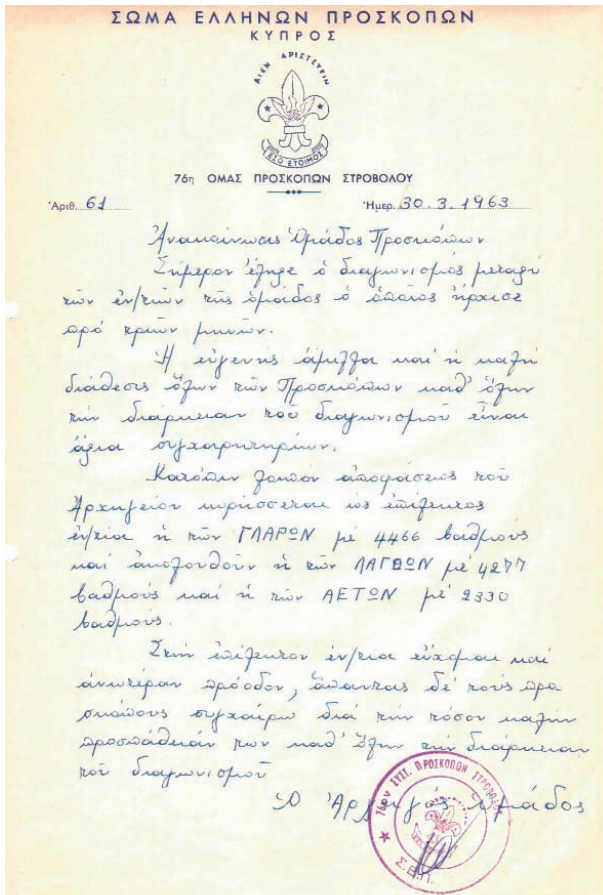 ΣΩΜΑ ΕΛΛΗΝΩΝ ΠΡΟΣΚΟΠΩΝ
ΚΥΠΡΟΣ
ΑΙΕΝ ΑΡΙΣΤΕΥΕΙΝ
ΕΣΟ ΕΤΟΙΜΟΣ
76η ΟΜΑΣ ΠΡΟΣΚΟΠΩΝ ΣΤΡΟΒΟΛΟΥ
Ἀριθ. 61 Ἡμερ. 30.3.1963
Ἀνακοίνωσις Ὁμάδος Προσκόπων
Σήμερον ἔληξε ὁ διαγωνισμός μεταξύ
τῶν ἐν/τιῶν τῆς ὁμάδος ὁ ὁποῖος ἤρχισε
πρό τριῶν μηνῶν.
Ἡ εὐγενής ἅμιλλα καί ἡ καλή
διάθεσις ὅλων τῶν Προσκόπων καθ' ὅλην
τήν διάρκειαν τοῦ διαγωνισμοῦ εἶναι
ἀξια συγχαρητηρίων.
Κατόπιν λοιπόν ἀποφάσεως τοῦ
Ἀρχηγείου κηρύσσεται ὡς ἐπίλεκτος
ἐν/τια ἡ τῶν ΓΛΑΡΩΝ μέ 4466 βαθμούς
καί ἀκολουθοῦν ἡ τῶν ΛΑΓΩΝ μέ 4277
βαθμούς καί ἡ τῶν ΑΕΤΩΝ μέ 2330
βαθμούς.
Στήν ἐπίλεκτον ἐν/τια εὔχομαι καί
ἀνωτέραν πρόοδον, ἅπαντας δέ τούς προ
σκόπους συγχαίρω διά τήν τόσον καλήν
προσπάθειάν των καθ' ὅλην τήν διάρκειαν
τοῦ διαγωνισμοῦ
Ὁ Ἀρχηγός Ὁμάδος
76ον ΣΥΣΤ. ΠΡΟΣΚΟΠΩΝ ΣΤΡΟΒΟΛΟΥ
Σ.Ε.Π.